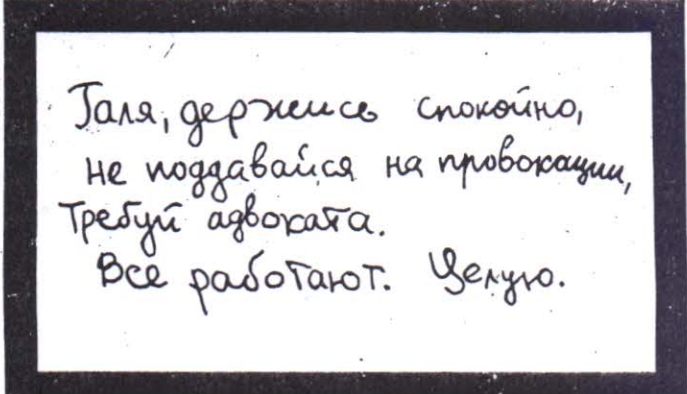 Галя, держись спокойно,
не поддавайся на провокации,
Требуй адвоката.
Все работают. Целую.